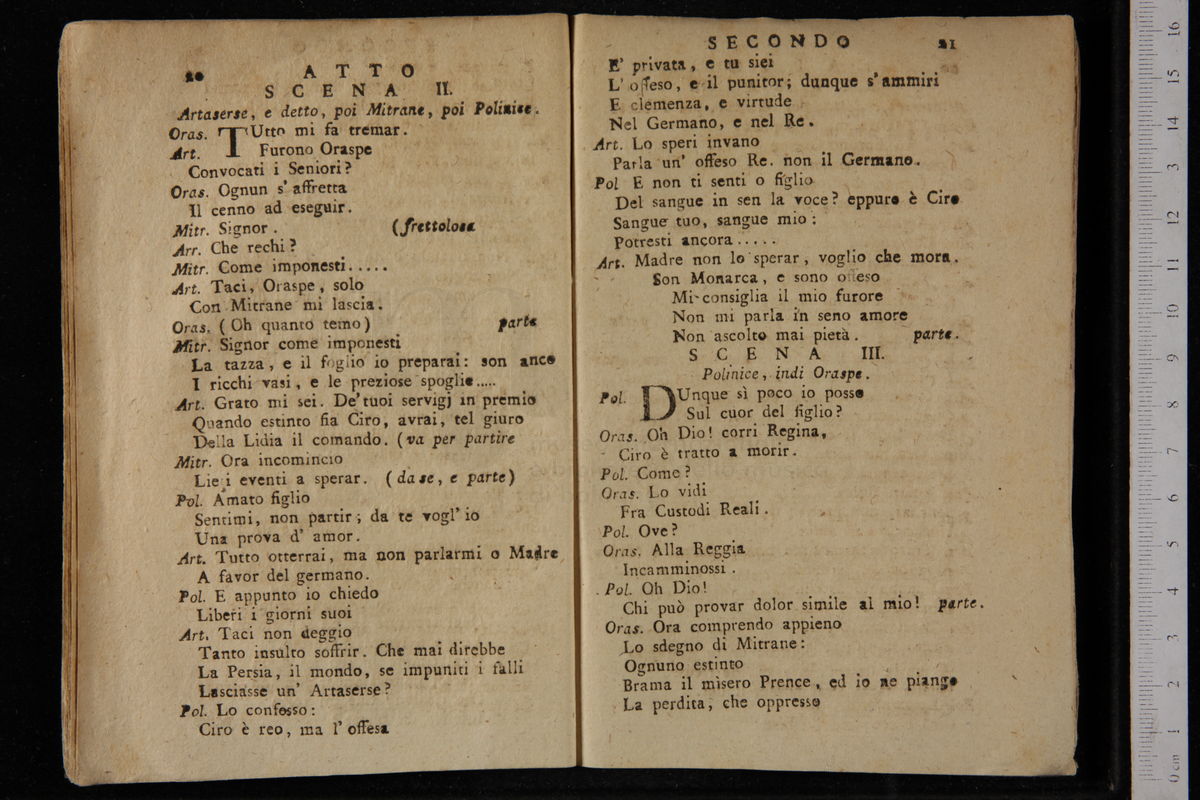 20 ATTO
SCENA II.
Artaserse, e detto, poi Mitrane, poi Polinice.
Oras. TUtto mi fa tremar.
Art. Furono Oraspe
Convocati i Seniori?
Oras. Ognun s' affretta
Il cenno ad eseguir.
Mitr. Signor. (frettoloso
Arr. Che rechi?
Mitr. Come imponesti.....
Art. Taci, Oraspe, solo
Con Mitrane mi lascia.
Oras. (Oh quanto temo) parte
Mitr. Signor come imponesti
La tazza, e il foglio io preparai: son anco
I ricchi vasi, e le preziose spoglie.....
Art. Grato mi sei. De' tuoi servigj in premio
Quando estinto fia Ciro, avrai, tel giuro
Della Lidia il comando. (va per partire
Mitr. Ora incomincio
Lieti eventi a sperar. (da se, e parte)
Pol. Amato figlio
Sentimi, non partir; da te vogl' io
Una prova d' amor.
Art. Tutto otterrai, ma non parlarmi o Madre
A favor del germano.
Pol. E appunto io chiedo
Liberi i giorni suoi
Art. Taci non deggio
Tanto insulto soffrir. Che mai direbbe
La Persia, il mondo, se impuniti i falli
Lasciasse un' Artaserse?
Pol. Lo confesso:
Ciro è reo, ma l' offesa
SECONDO 21
E' privata, e tu siei
L' offeso, e il punitor; dunque s' ammiri
E clemenza, e virtude
Nel Germano, e nel Re.
Art. Lo speri invano
Parla un' offeso Re. non il Germano.
Pol E non ti senti o figlio
Del sangue in sen la voce? eppure è Ciro
Sangue tuo, sangue mio:
Potresti ancora.....
Art. Madre non lo sperar, voglio che mora.
Son Monarca, e sono offeso
Mi consiglia il mio furore
Non mi parla in seno amore
Non ascolto mai pietà. parte.
SCENA III.
Polinice, indi Oraspe.
Pol. DUnque sì poco io posso
Sul cuor del figlio?
Oras. Oh Dio! corri Regina,
Ciro è tratto a morir.
Pol. Come?
Oras. Lo vidi
Fra Custodi Reali.
Pol. Ove?
Oras. Alla Reggia
Incamminossi.
Pol. Oh Dio!
Chi può provar dolor simile al mio! parte.
Oras. Ora comprendo appieno
Lo sdegno di Mitrane:
Ognuno estinto
Brama il misero Prence, ed io ne piango
La perdita, che oppresso
0 cm 1 2 3 4 5 6 7 8 9 10 11 12 13 14 15 16